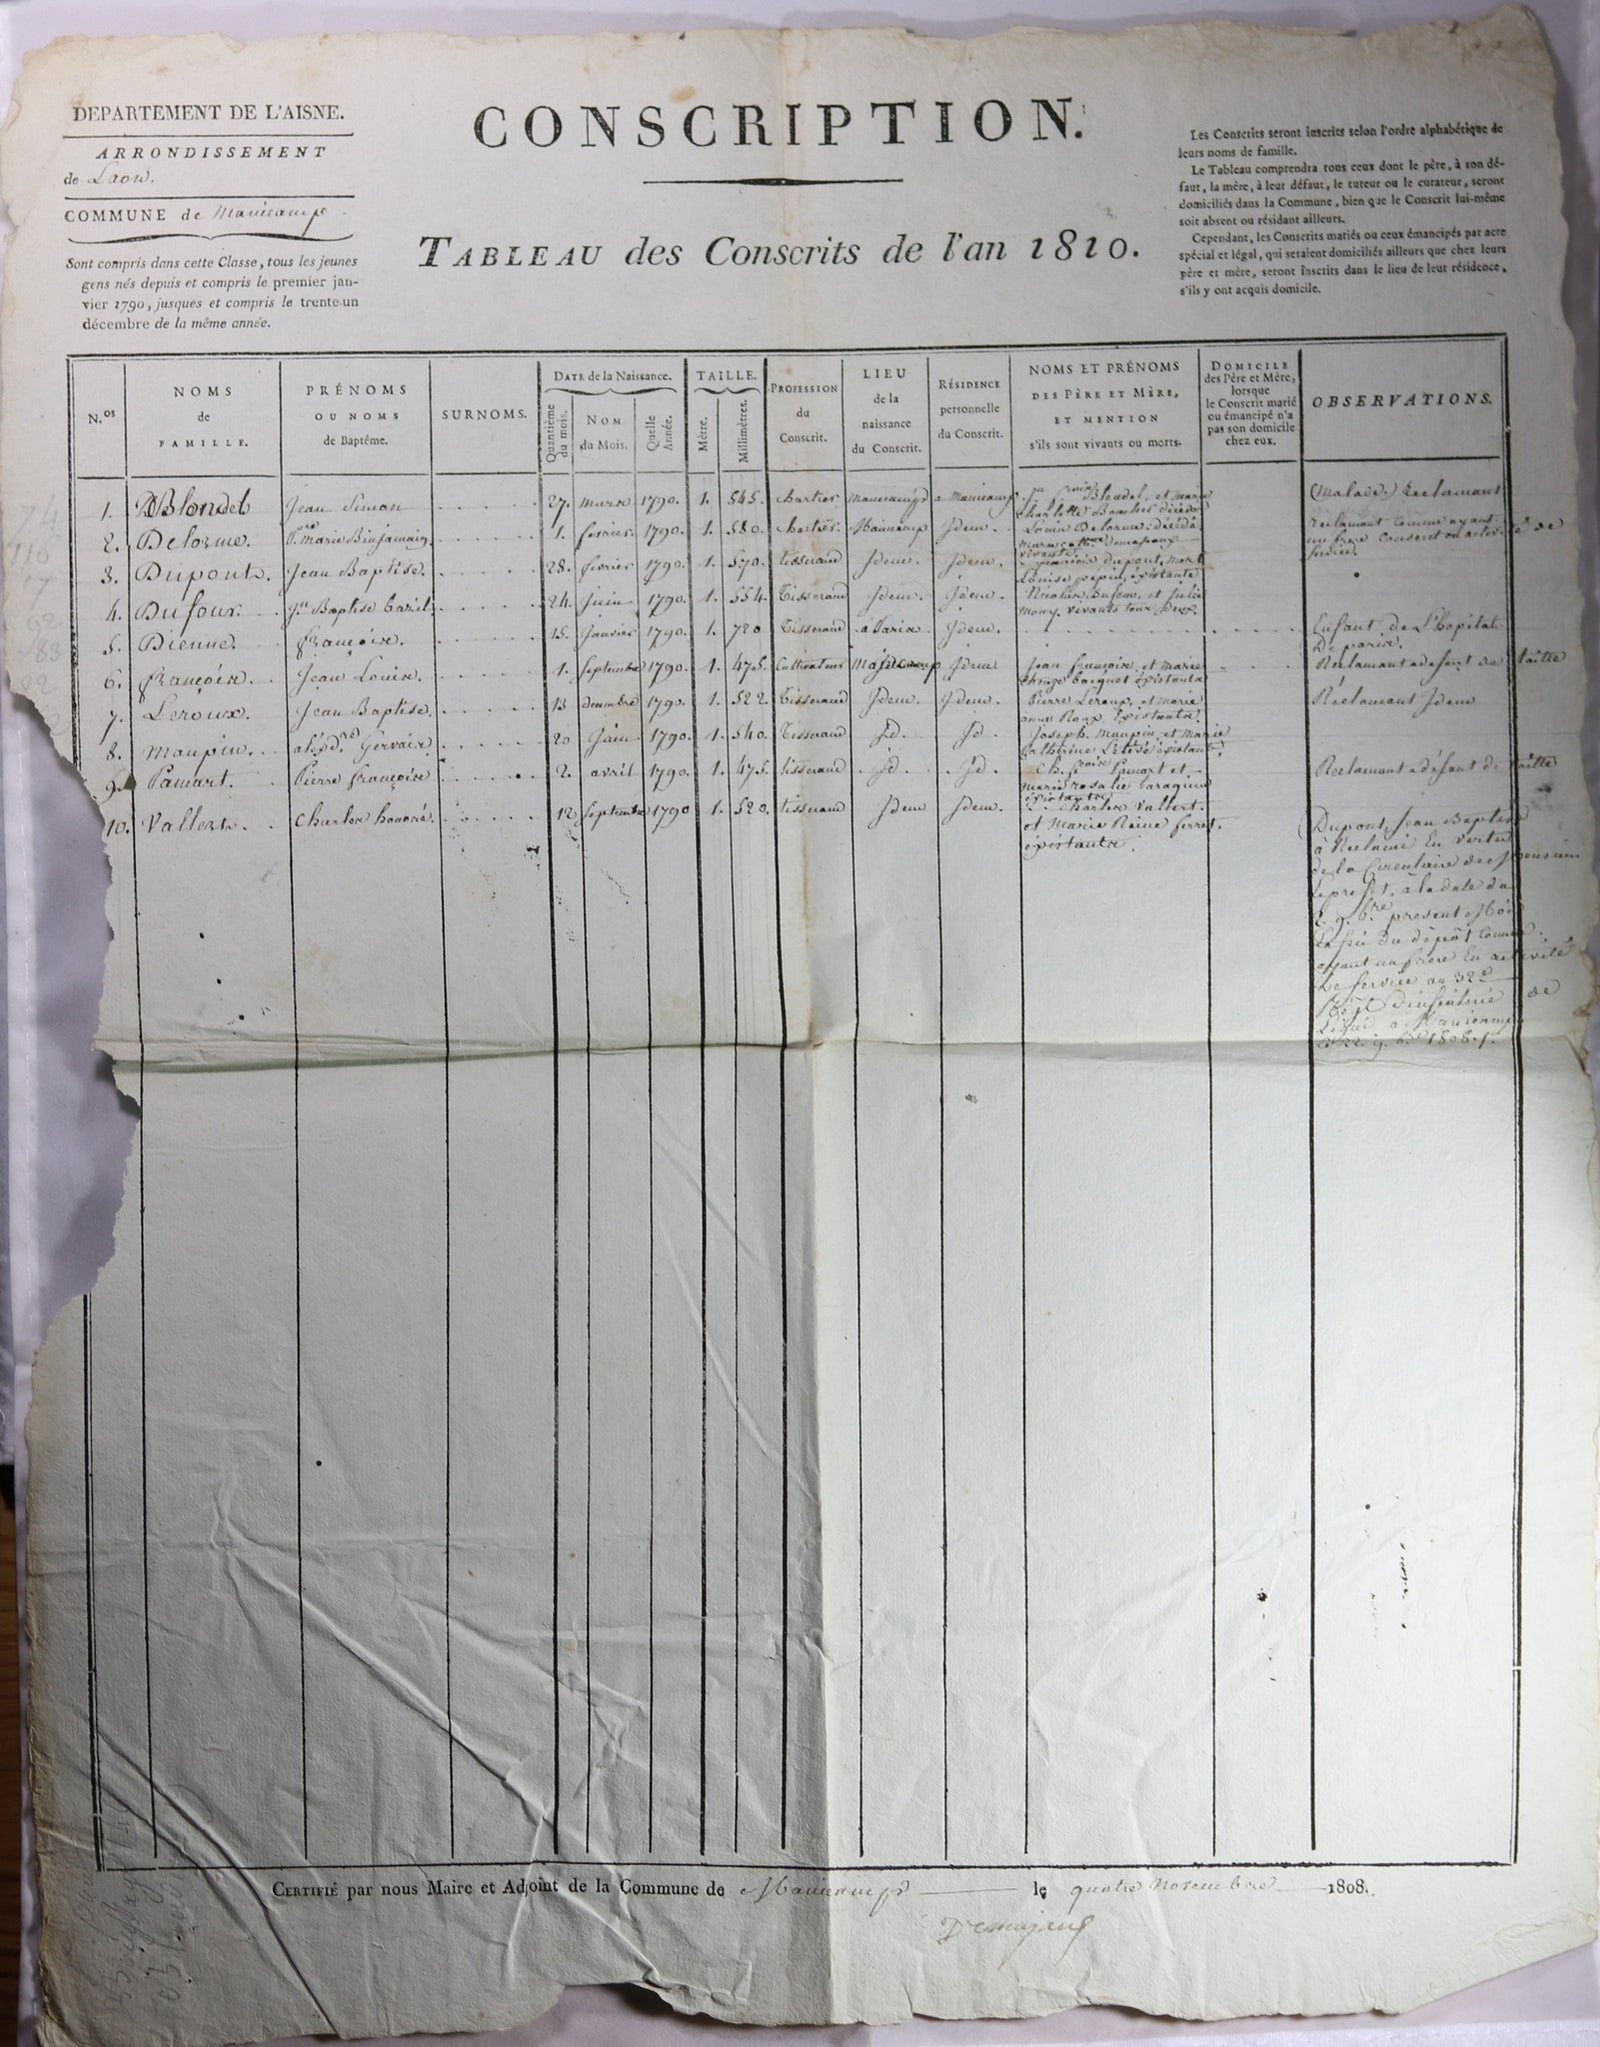 DEPARTEMENT DE L'AISNE.
ARRONDISSEMENT
de Laon.
COMMUNE de Manicamp
Sont compris dans cette Classe, tous les jeunes
gens nés depuis et compris le premier jan-
vier 1790, jusques et compris le trente-un
décembre de la même année.
CONSCRIPTION.
TABLEAU des Conscrits de l'an 1810.
Les Conscrits seront inscrits selon l'ordre alphabétique de
leurs noms de famille.
Le Tableau comprendra tous ceux dont le père, à son dé-
faut, la mère, à leur défaut, le tuteur ou le curateur, seront
domiciliés dans la Commune, bien que le Conscrit lui-même
soit absent ou résidant ailleurs.
Cependant, les Conscrits mariés ou ceux émancipés par acte
spécial et légal, qui seraient domiciliés ailleurs que chez leurs
père et mère, seront inscrits dans le lieu de leur résidence,
s'ils y ont acquis domicile.
N.os
NOMS
de
FAMILLE.
PRÉNOMS
OU NOMS
de Baptême.
SURNOMS.
DATE de la Naissance.
Quantième
du mois.
NOM
du Mois.
Quelle
Année.
TAILLE.
Mètre.
Millimètres.
PROFESSION
du
Conscrit.
LIEU
de la
naissance
du Conscrit.
RÉSIDENCE
personnelle
du Conscrit.
NOMS ET PRÉNOMS
DES PÈRE ET MÈRE,
ET MENTION
s'ils sont vivants ou morts.
DOMICILE
des Père et Mère,
lorsque
le Conscrit marié
ou émancipé n'a
pas son domicile
chez eux.
OBSERVATIONS.
1. Blondel Jean Simon 27. mars 1790. 1. 545. chartier Manicamp a Manicamp. Blondel, et marie
charlotte décédé (Malade.) Reclamant
2. Delorme. P.re Marie 1. fevrier. 1790. 1. 580. chartier. Manicamp Jdem. Louis Delorme. décédé
vivante Reclamant comme ayant
un frere conscrit en activité de
service.
3. Dupont. Jean Baptise. 28. fevrier 1790. 1. 570. tisserand Jdem. Jdem. dupont, mort
Louise pepin, existante
4. Dufour. J.n Baptise bazil 24. Juin 1790. 1. 554. Tisserand Jdem. Jdem. Nicolas Dufour, et Julie
Mony. vivants tous deux.
5. Dienne. françois. 15. Janvier 1790. 1. 720 Tisserand à Paris. Jdem. Enfant de l'hopital
De paris.
6. françois. Jean Louis. 1. Septembre 1790. 1. 475. Cultivateur Manicamp Jdem Jean françois, et marie
bocquet existante Reclamant a défaut de taille
7. Leroux. Jean Baptise. 13 decembre 1790. 1. 522. Tisserand Jdem. Jdem. Pierre Leroux, et marie
anne Roux. Existante. Reclamant Jdem
8. Maupin. Gervais 20 Juin 1790. 1. 540. Tisserand Jd. Jd. Joseph Maupin et marie
Catherine existante
9. Pamart. Pierre françois 2. avril 1790. 1. 475. tisserand Jd. Jd. Ch. Pamart et
marie rosalie
existante Reclamant a défaut de taille
10. Vallert. Charles honoré. 12 Septembre 1790 1. 520. tisserand Jdem Jdem. Charles Vallert.
et Marie Reine ferret.
éxistante.
Dupont, Jean Baptise
à Reclamé En vertu
de la Circulaire de
Le prefet, à la date du
present
du dépôt comme
ayant un frere En activité
de service au 32e
d'infanterie de
a Manicamp
22. 9.bre 1808.
CERTIFIÉ par nous Maire et Adjoint de la Commune de Manicamp le quatre Novembre 1808.